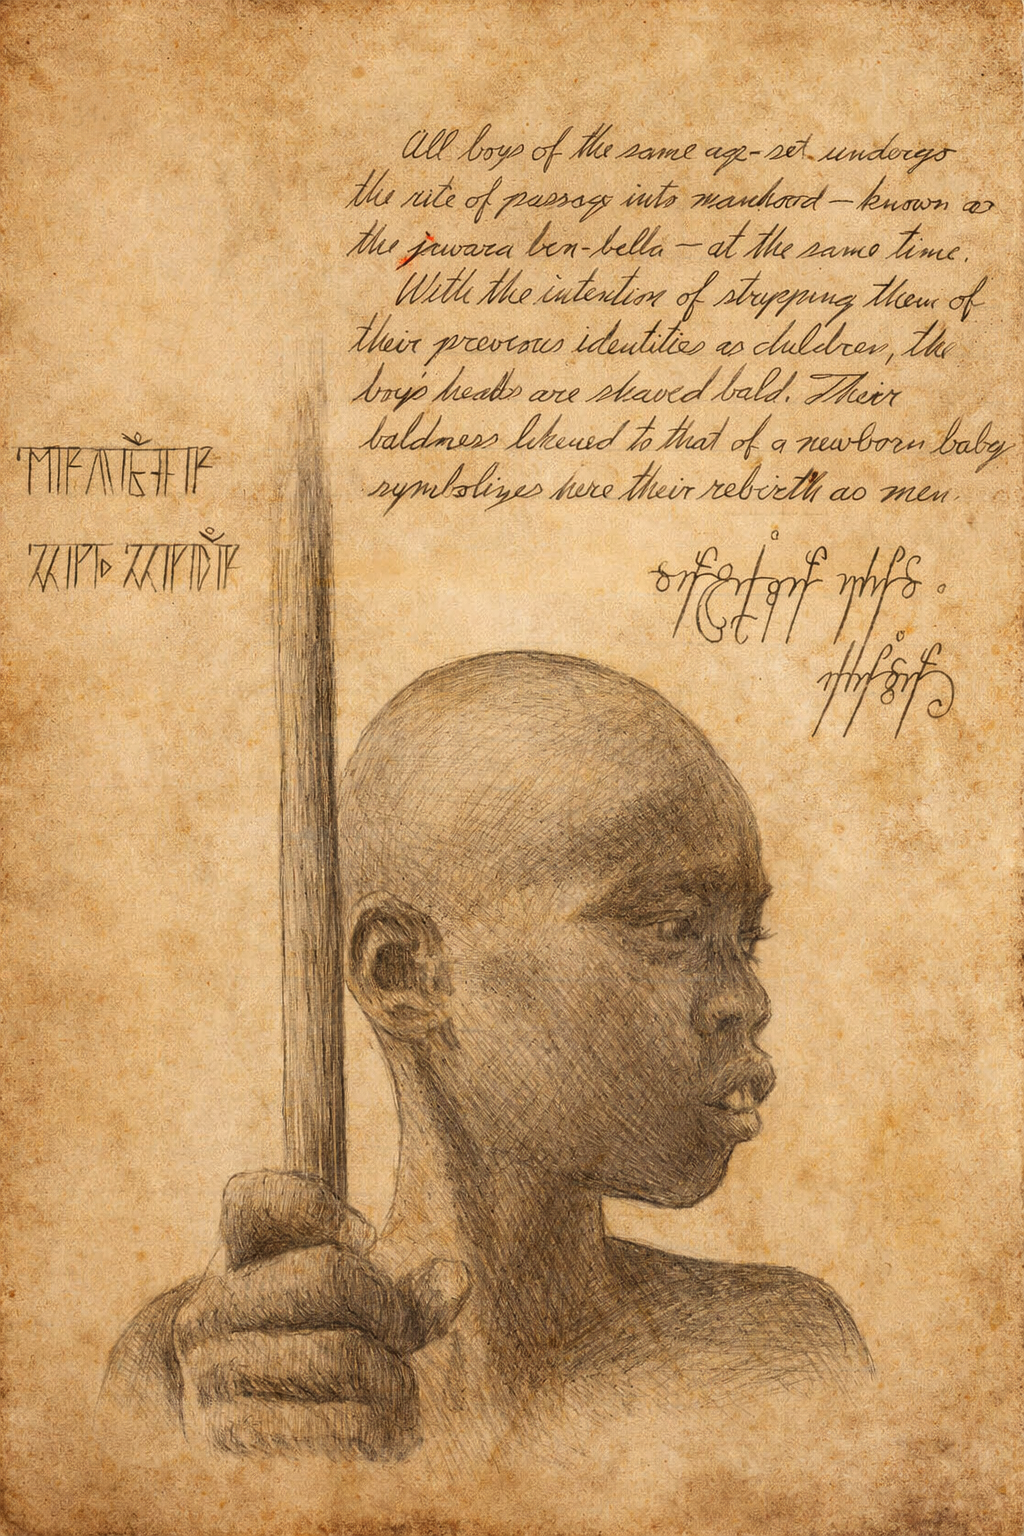 All boys of the same age-set undergo
the rite of passage into manhood — known as
the juvara ben-bella — at the same time.
With the intention of stripping them of
their previous identities as children, the
boy's heads are shaved bald. Their
baldness likened to that of a newborn baby
symbolizes here their rebirth as men.